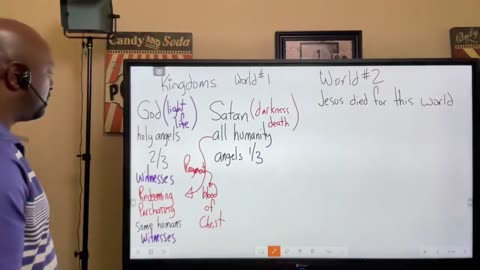 CANDY AND SODA
CANDY
Kingdoms World #1 World #2
God (light life) Satan (darkness death) Jesus died for this world
holy angels all humanity
2/3 angels 1/3
Witnesses Payment
Redeeming blood
Purchasing of
some humans Christ
Witnesses